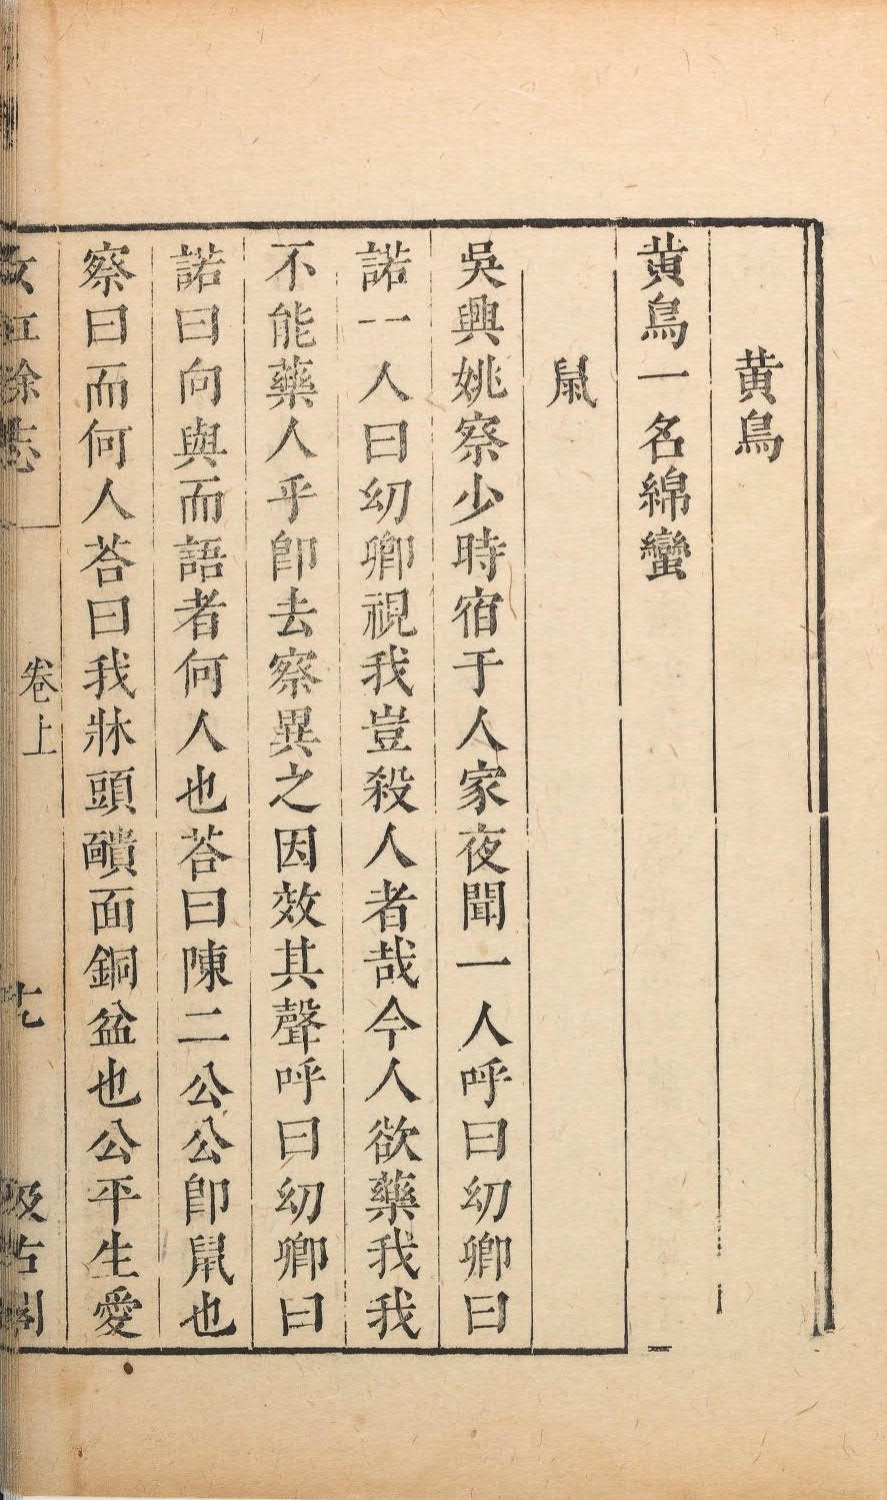 黄鳥
黄鳥一名綿蠻
鼠
吳興姚察少時宿于人家夜聞一人呼曰幼卿曰
諾一人曰幼卿視我豈殺人者哉今人欲藥我我
不能藥人乎卽去察異之因效其聲呼曰幼卿曰
諾曰向與而語者何人也荅曰陳二公公卽鼠也
察曰而何人荅曰我牀頭靧面銅盆也公平生愛
卷上
汲古閣